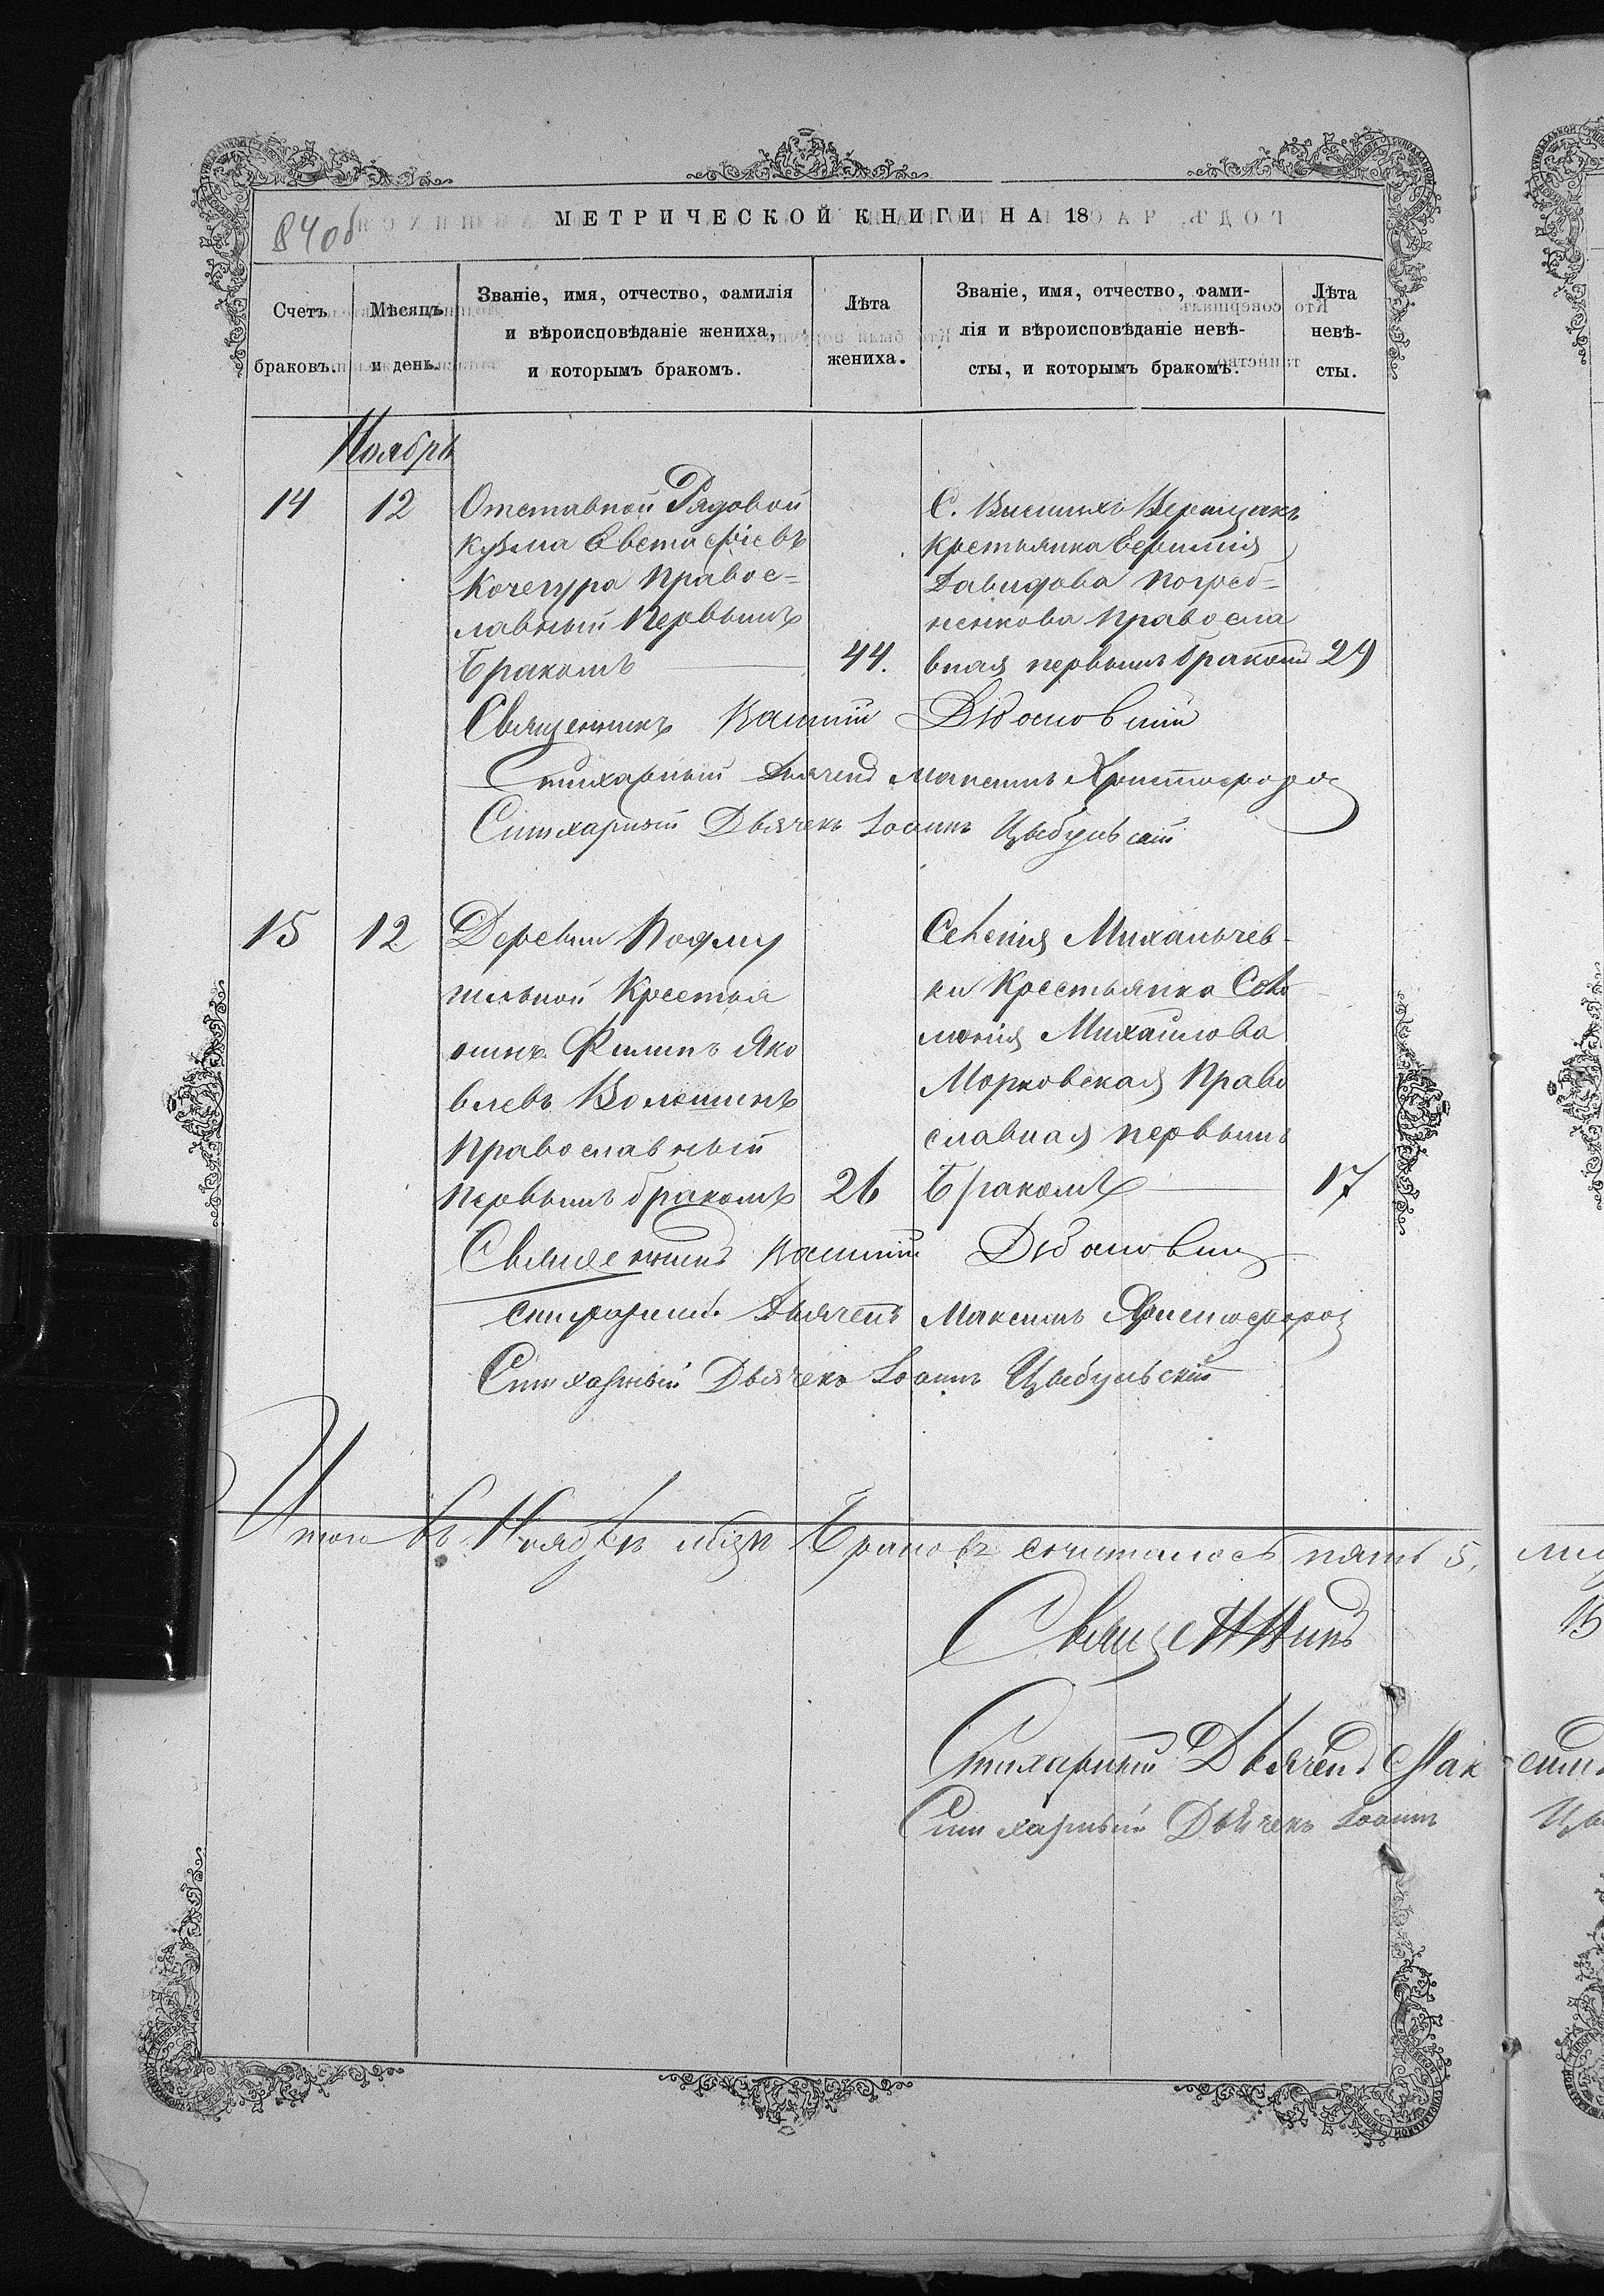 84об
МЕТРИЧЕСКОЙ КНИГИ НА 18
Счетъ браковъ.
Мѣсяцъ и день.
Званіе, имя, отчество, фамилія
и вѣроисповѣданіе жениха,
и которымъ бракомъ.
Лѣта
жениха.
Званіе, имя, отчество, фами-
лія и вѣроисповѣданіе невѣ-
сты, и которымъ бракомъ.
Лѣта
невѣ-
сты.
Ноябрь
14
12
Отставной Рядовой
Кузьма Евстафіевъ
Кочегура Правос=
лавный Первымъ
Бракомъ
44.
С. Верещакъ
Крестьянка
Давидова Погреб=
ненкова Правосла
вная первымъ бракомъ
29
Священникъ
Стихарный Дьячекъ Максимъ Христофоро
Стихарный Дьячекъ Іоаннъ Цыбульскій
15
12
Деревни
Крестья
нинъ Филипъ Яко
влевъ Волошинъ
Православный
Первымъ бракомъ
26
Селенія Михайлов-
ки Крестьянка Соло
монія Михайлова
Морковская Право
славная первымъ
Бракомъ
17
Священникъ
Стихарный Дьячекъ Максимъ Христофоро
Стихарный Дьячекъ Іоаннъ Цыбульскій
Итого въ Ноябрѣ мцѣ Браковъ считалось пять 5,
Священникъ
15
Стихарный Дьячекъ Максимъ
Стихарный Дьячекъ Іоаннъ Цы